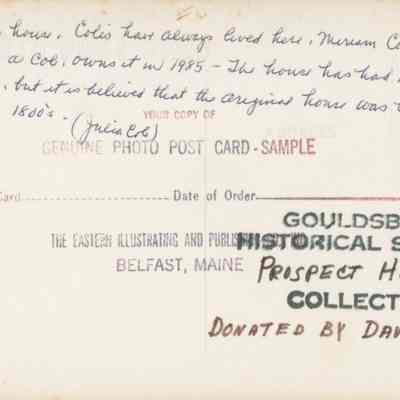 house. Coles have always lived here. Miriam Co
a Cole owns it in 1985 - The house has had
, but it is believed that the original house was
1800's - (Julia Cole)
YOUR COPY OF
GENUINE PHOTO POST CARD - SAMPLE
Card
Date of Order
THE EASTERN ILLUSTRATING AND PUBLISHING
BELFAST, MAINE
GOULDSB
HISTORICAL S
PROSPECT H
COLLECT
DONATED BY DAV